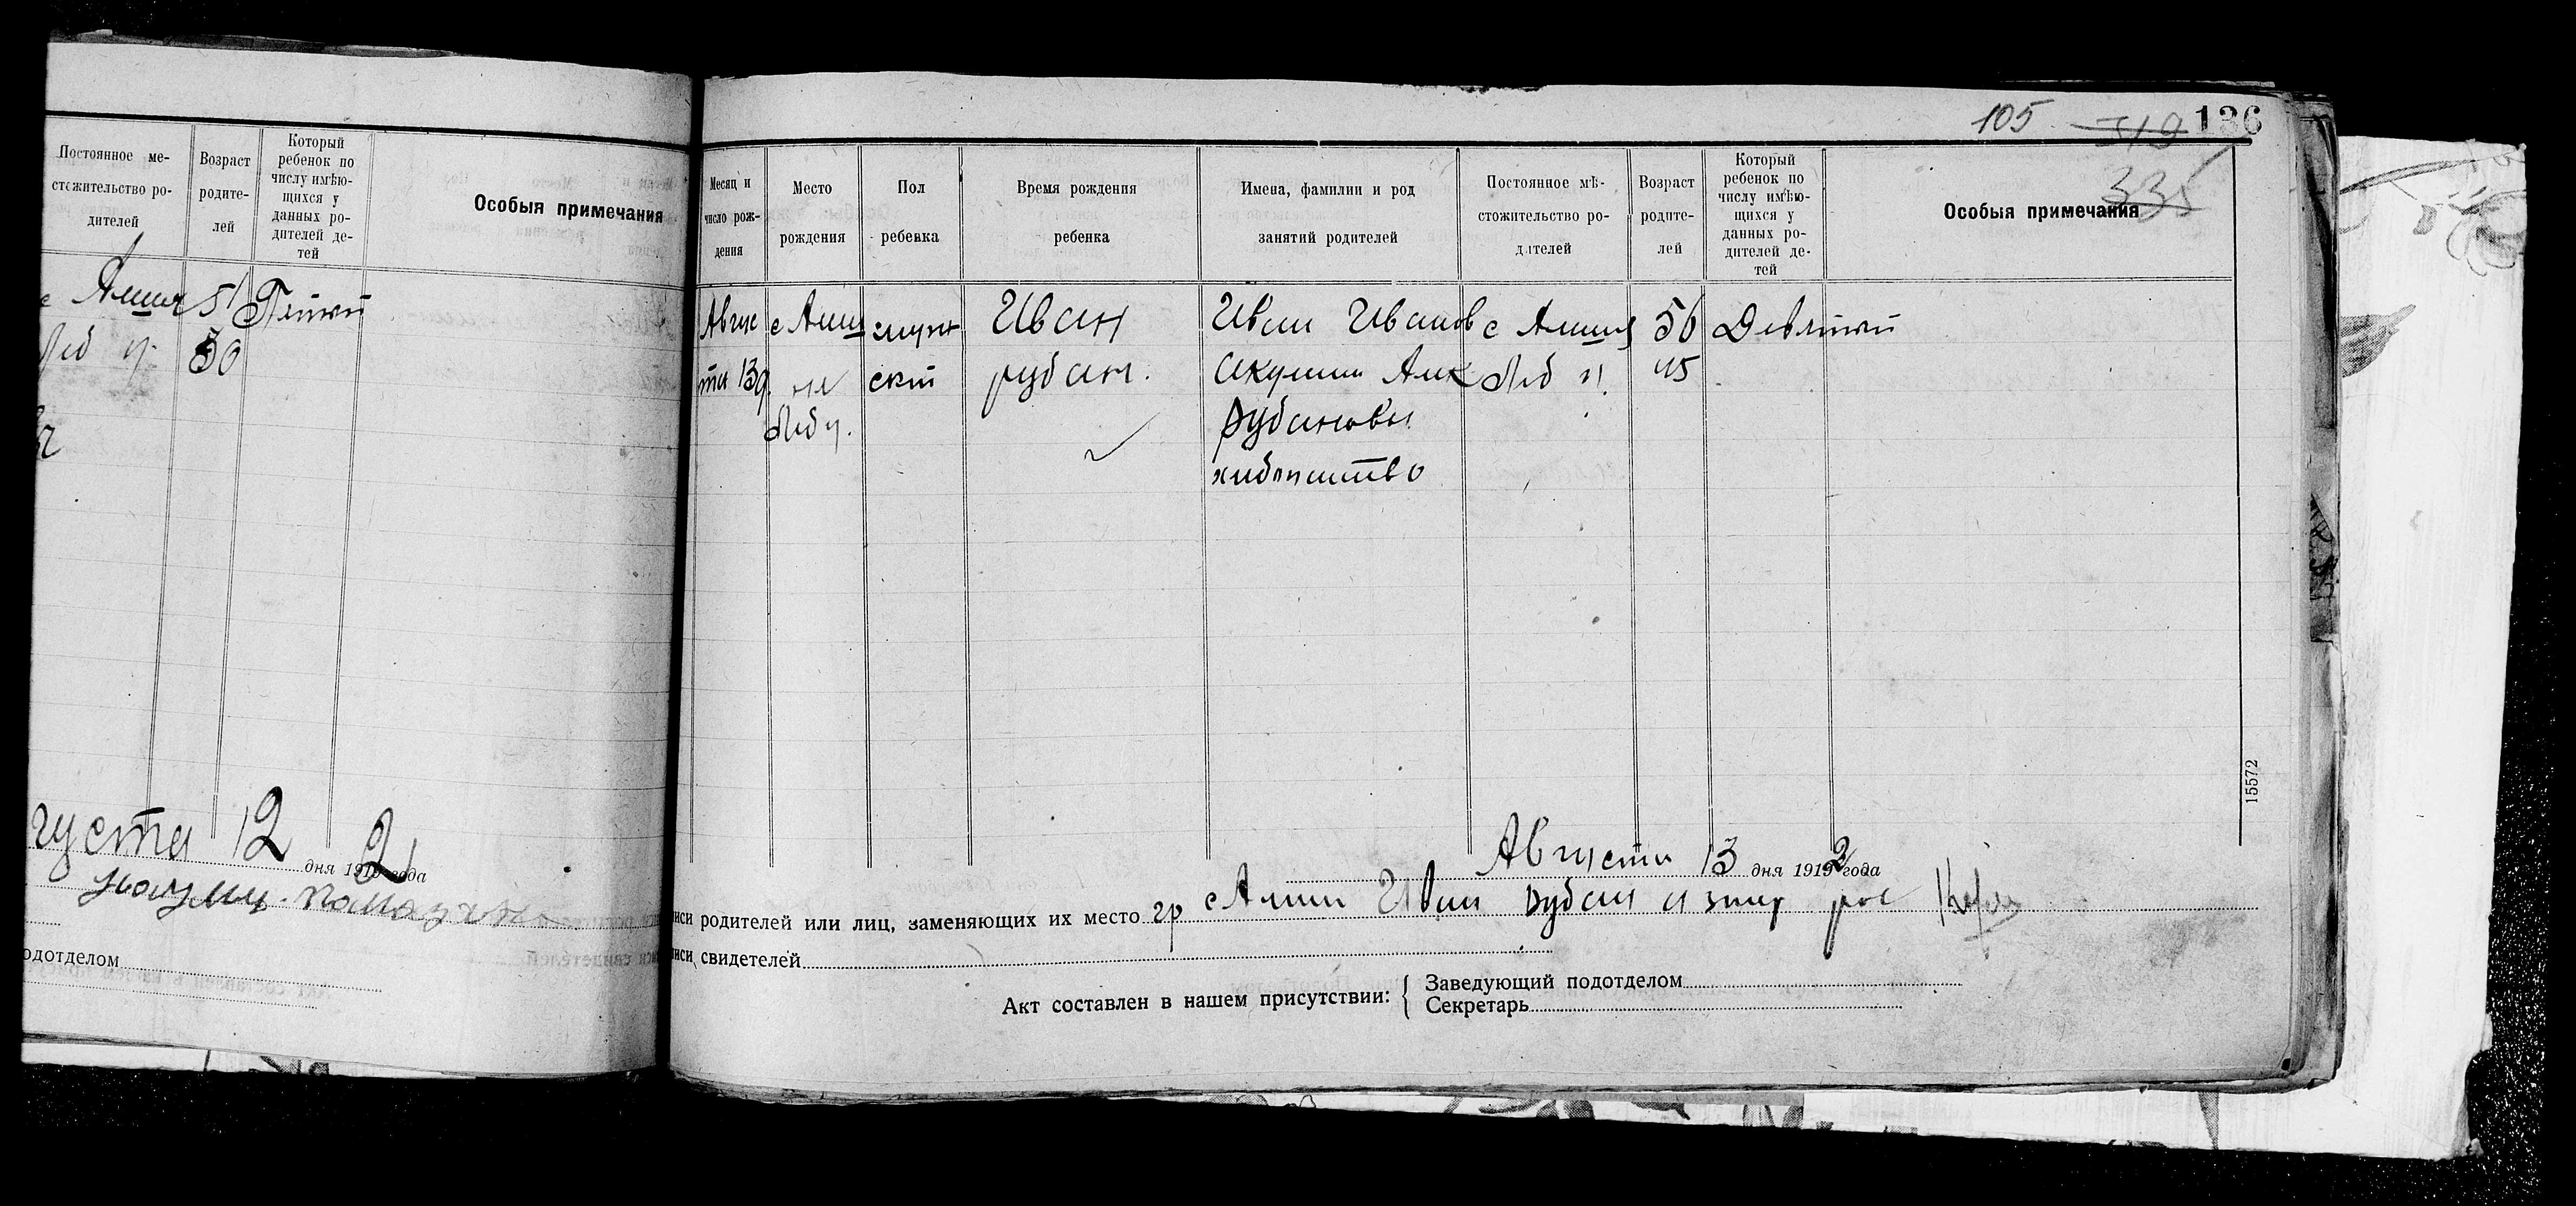 Постоянное ме-
стожительство ро-
дителей
Возраст
родите-
лей
Который
ребенок по
числу имѣю-
щихся у
данных ро-
дителей де-
тей
Особыя примечания
51
30
густа 12 дня 1912 года
подотделом
105 319 136
335
Месяц и
число рож-
дения
Место
рождения
Пол
ребенка
Время рождения
ребенка
Имена, фамилии и род
занятий родителей
Постоянное мѣ-
стожительство ро-
дителей
Возраст
родите-
лей
Который
ребенок по
числу имѣю-
щихся у
данных ро-
дителей де-
тей
Особыя примечания
Авгус
та 13д.
мужс
кой
Иван
рубан.
Иван Иванов
Акулина
Рубановы
хлебопашество
56
45
Девятый
15572
Августа 13 дня 1919 года
писи родителей или лиц, заменяющих их место гр Иван Рубан
писи свидетелей
Акт составлен в нашем присутствии:
Заведующий подотделом
Секретарь